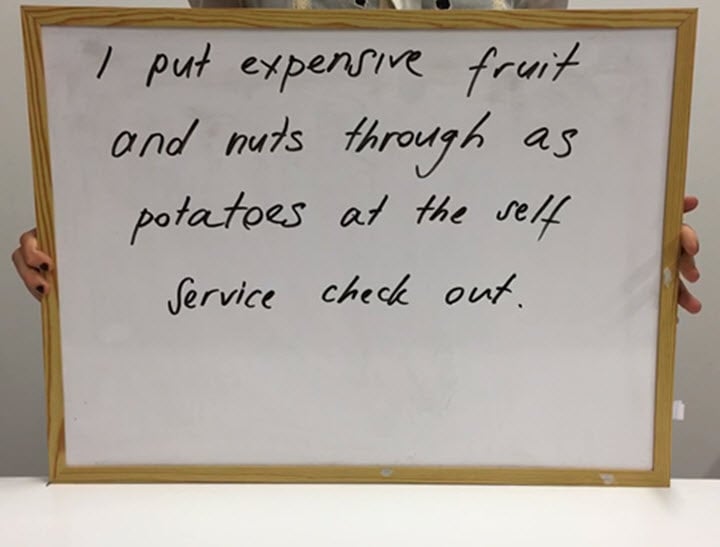 I put expensive fruit
and nuts through as
potatoes at the self
service check out.